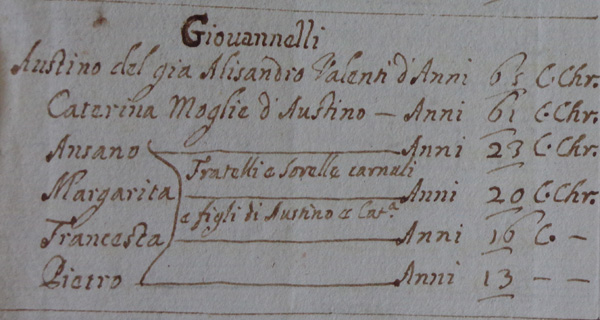 Giovannelli
Austino del gia Alisandro Valenti d'Anni 65 C. Chr.
Caterina Moglie d'Austino – Anni 61 C. Chr.
Ansano Anni 23 C. Chr.
Fratelli e Sorelle carnali
Margarita Anni 20 C. Chr.
e figli di Austino e Cat.a
Francesca Anni 16 C. –
Pietro Anni 13 – –